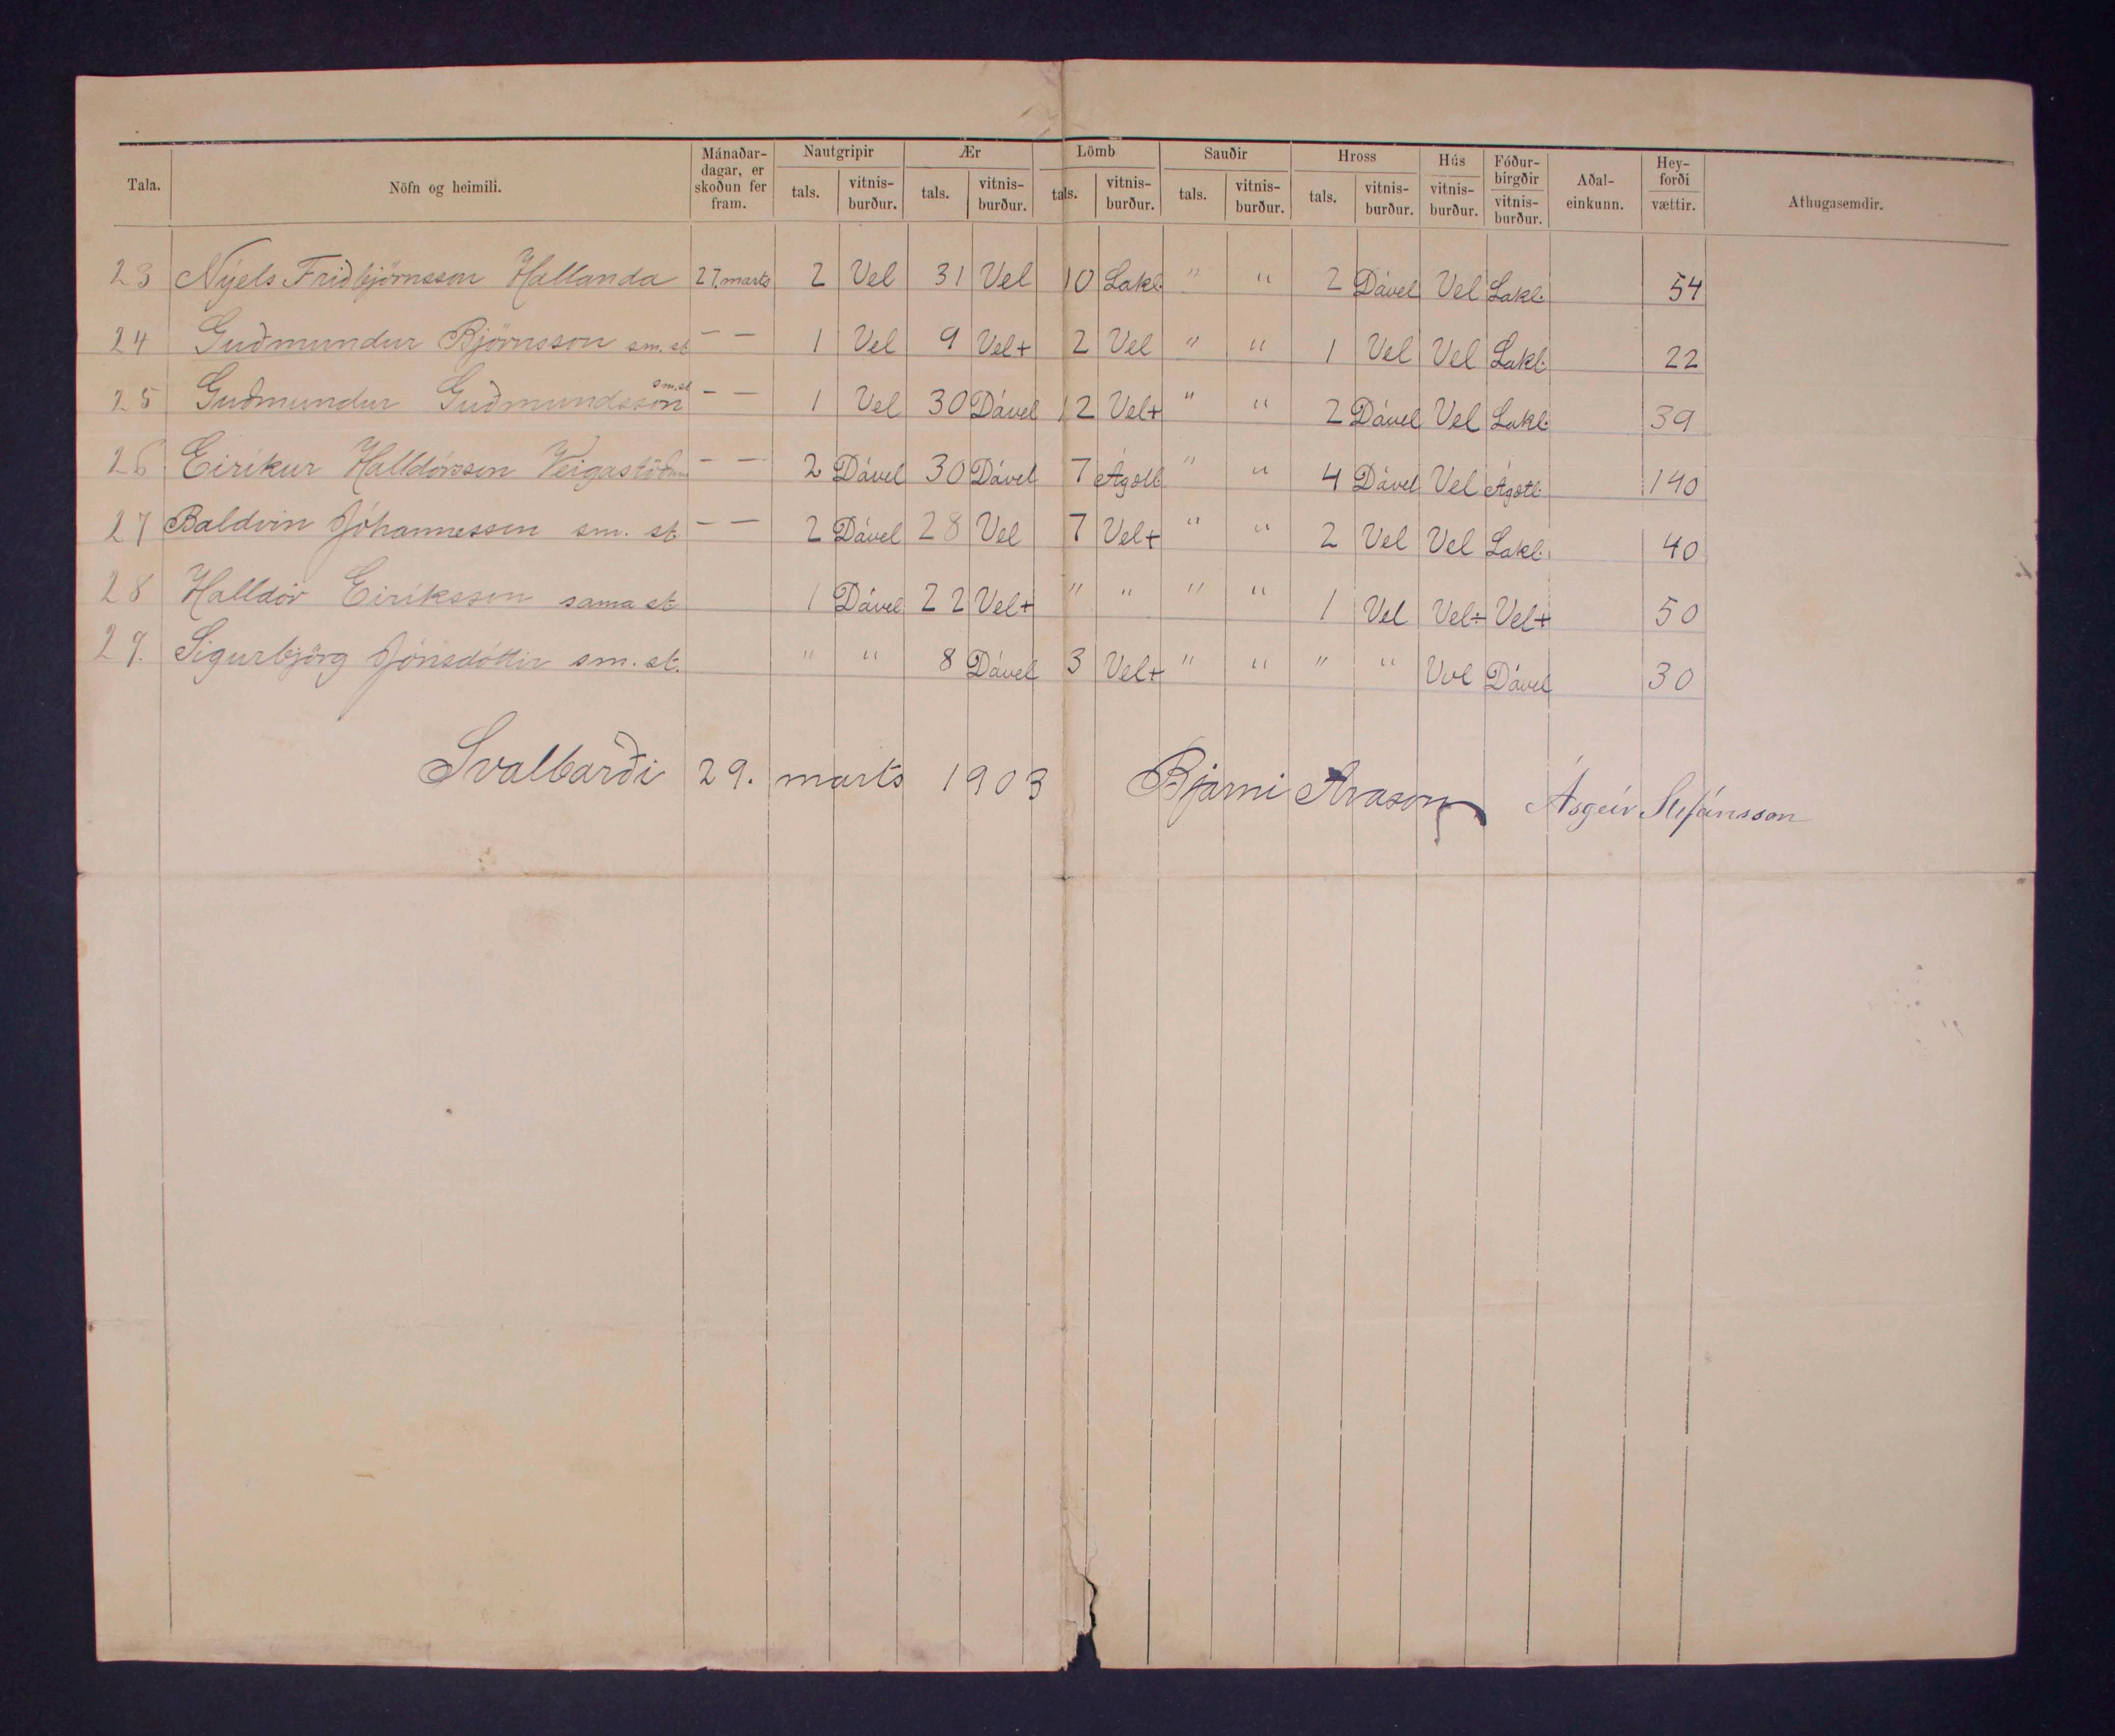 Tala. Nöfn og heimili. Mánaðardagar, er skoðun fer fram. Nautgripir tals. vitnisburður. Ær tals. vitnisburður. Lömb tals. vitnisburður. Sauðir tals. vitnisburður. Hross tals. vitnisburður. Hús vitnisburður. Fóðurbirgðir vitnisburður. Aðaleinkunn. Heyforði vættir. Athugasemdir.
23 Nýels Friðbjörnsson Hallanda 27. marts 2 Vel 31 Vel 10 Lakl. " " 2 Dável Vel Lakl. 54
24 Guðmundur Björnsson sm. st — — 1 Vel 9 Vel+ 2 Vel " " 1 Vel Vel Lakl. 22
25 Guðmundur Guðmundsson sm. st — — 1 Vel 30 Dável 12 Vel+ " " 2 Dável Vel Lakl. 39
26 Eiríkur Halldórsson Veigastöðum — — 2 Dável 30 Dável 7 Ágætl " " 4 Dável Vel Ágætl. 140
27 Baldvin Jóhannesson sm. st — — 2 Dável 28 Vel 7 Vel+ " " 2 Vel Vel Lakl. 40
28 Halldór Eiríksson sama st 1 Dável 22 Vel+ " " " " 1 Vel Vel+ Vel+ 50
29. Sigurbjörg Jónsdóttir sm. st. " " 8 Dável 3 Vel+ " " " " Vel Dável 30
Svalbarði 29. marts 1903 Bjarni Arason Ásgeir Stefánsson